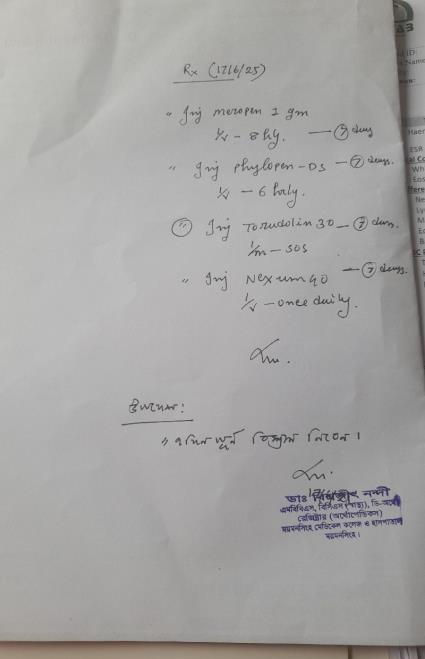 Rx (17/6/25)
" Inj meropen 1 gm
1/v - 8 hly. — 7 days
" Inj phylopen-DS — 7 days.
1/v - 6 hrly.
" Inj Torudolin 30 — 7 days.
1/m - SOS
" Inj Nexum 40 — 7 days.
1/v - once daily.
উপদেশ:
" ৭ দিন পূর্ন বিশ্রাম নিবেন।
ডাঃ নন্দী
এমবিবিএস, বিসিএস (স্বাস্থ্য), ডি-অর্থো
রেজিস্ট্রার (অর্থোপেডিকস)
ময়মনসিংহ মেডিকেল কলেজ ও হাসপাতাল
ময়মনসিংহ।
ESR